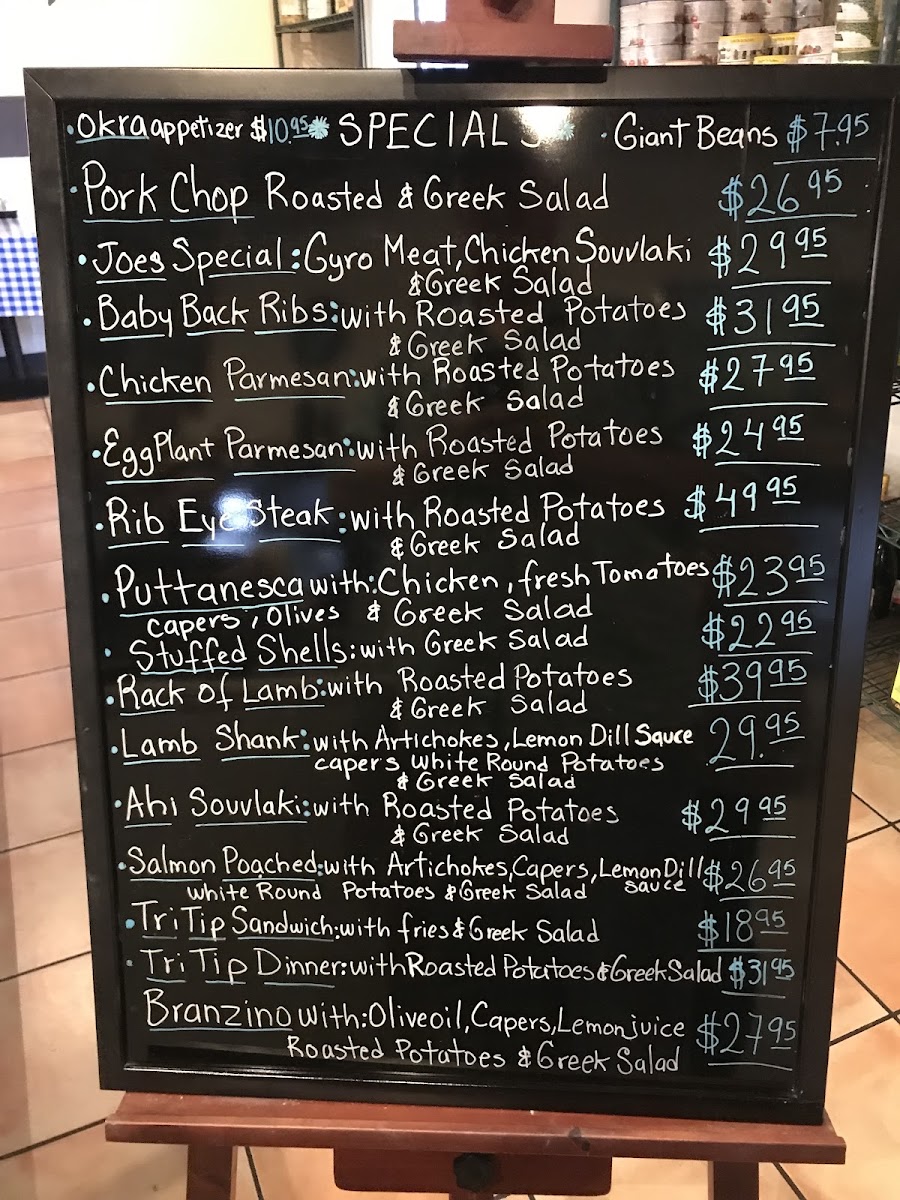 •Okra appetizer $10.95 * SPECIALS * •Giant Beans $7.95
•Pork Chop Roasted & Greek Salad $26.95
•Joes Special: Gyro Meat, Chicken Souvlaki $29.95
& Greek Salad
•Baby Back Ribs: with Roasted Potatoes $31.95
& Greek Salad
•Chicken Parmesan: with Roasted Potatoes $27.95
& Greek Salad
•EggPlant Parmesan: with Roasted Potatoes $24.95
& Greek Salad
•Rib Eye Steak: with Roasted Potatoes $49.95
& Greek Salad
•Puttanesca with: Chicken, fresh Tomatoes $23.95
capers, Olives & Greek Salad
•Stuffed Shells: with Greek Salad $22.95
•Rack of Lamb: with Roasted Potatoes $39.95
& Greek Salad
•Lamb Shank: with Artichokes, Lemon Dill Sauce 29.95
capers white Round Potatoes
& Greek Salad
•Ahi Souvlaki: with Roasted Potatoes $29.95
& Greek Salad
•Salmon Poached: with Artichokes, Capers, Lemon Dill $26.95
white Round Potatoes & Greek Salad sauce
•Tri Tip Sandwich: with fries & Greek Salad $18.95
•Tri Tip Dinner: with Roasted Potatoes & Greek Salad $31.95
Branzino with: Olive oil, Capers, Lemon juice $27.95
Roasted Potatoes & Greek Salad